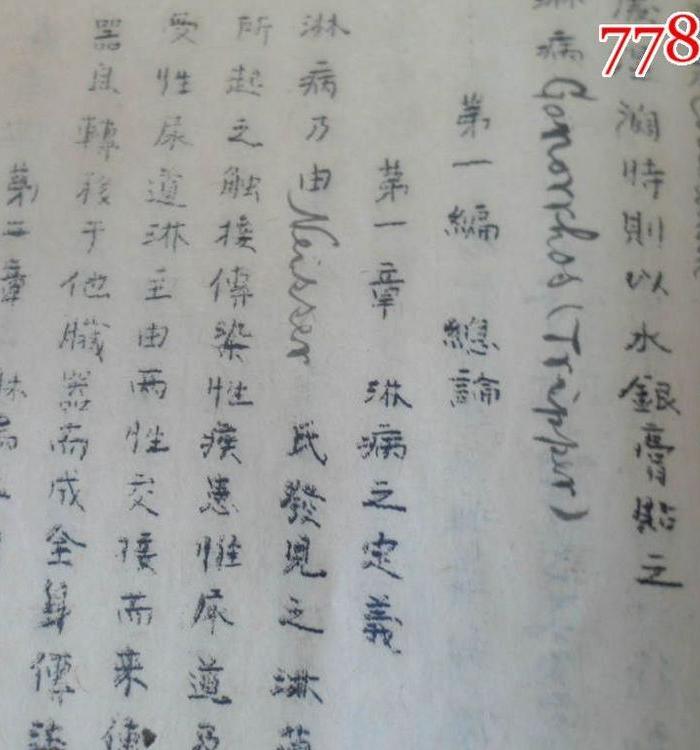 778
潤時則以水銀膏貼之
淋病 Gonorrhos (Tripper)
第一編 總論
第一章 淋病之定義
淋病乃由 Neisser 氏發見之淋菌
所起之触接傳染性疾患惟尿道
受性尿道淋主由两性交接而来
器且轉移于他臓器而成全身傳染
第二章